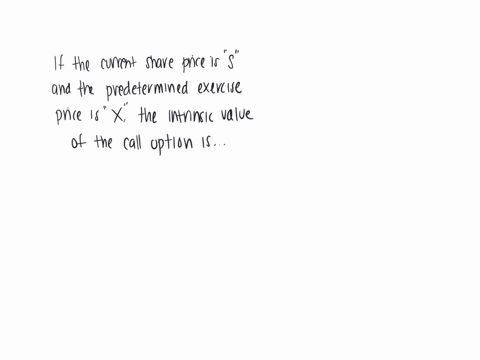 If the current share price is "S"
and the predetermined exercise
price is "X," the intrinsic value
of the call option is...